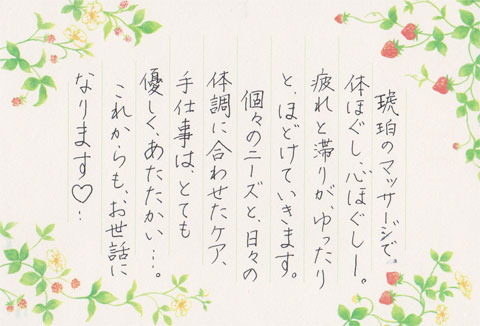 琥珀のマッサージで。
体ほぐし、心ほぐしー。
疲れと滞りが、ゆったり
と、ほどけていきます。
個々のニーズと、日々の
体調に合わせたケア、
手仕事は、とても
優しく、あたたかい…。
これからも、お世話に
なります♡…